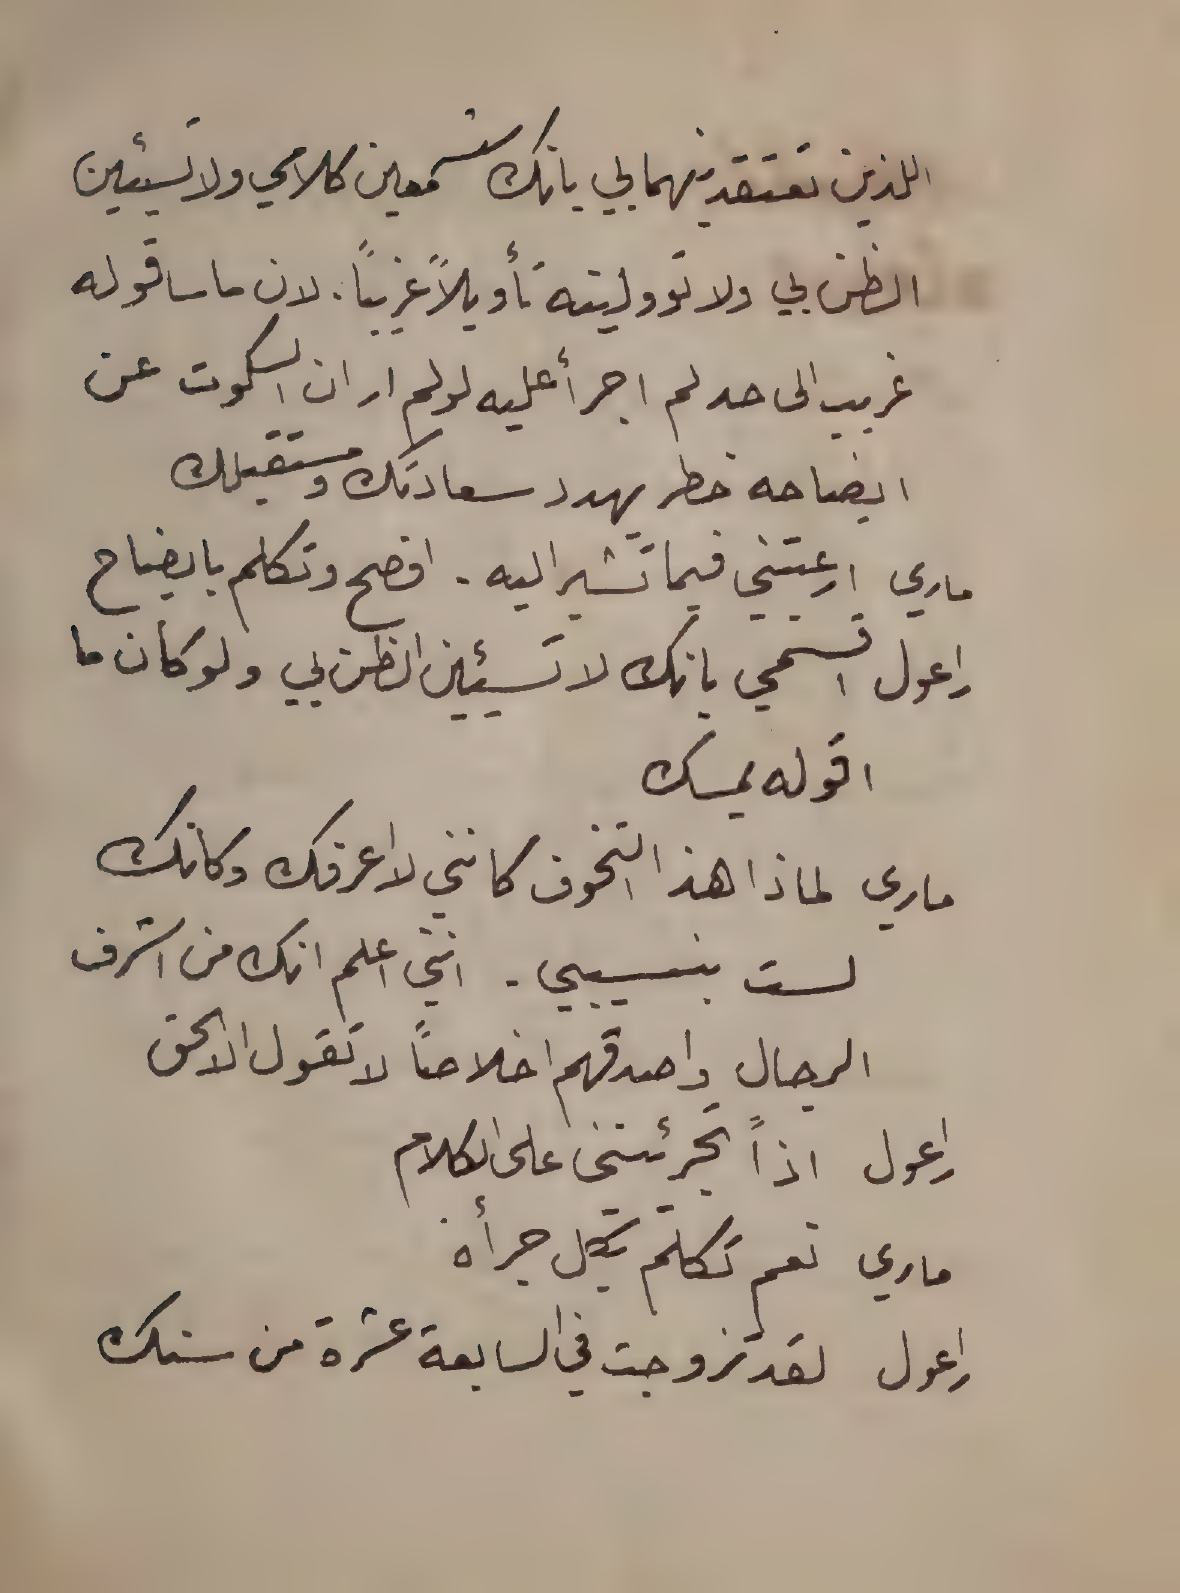 اللذين تعتقدينهما بي بانك ستسمعين كلامي ولا تسيئين
الظن بي ولا تووليته تأويلاً غريباً. لان ما ساقوله
غريب الى حد لم اجرأ عليه لو لم ار ان السكوت عن
ايضاحه خطر يهدد سعادتك ومستقبلك
ماري ارعبتني فيما تشير اليه. افصح وتكلم بايضاح
راعول اقسمي بانك لا تسيئين الظن بي ولو كان ما
اقوله يمسك
ماري لماذا هذا التخوف كانني لا اعرفك وكانك
لست بنسيبي. انني اعلم انك من اشرف
الرجال واصدقهم اخلاصاً لا تقول الا الحق
راعول اذاً تجرئينني على الكلام
ماري نعم تكلم بكل جرأة
راعول لقد تزوجت في السابعة عشرة من سنك